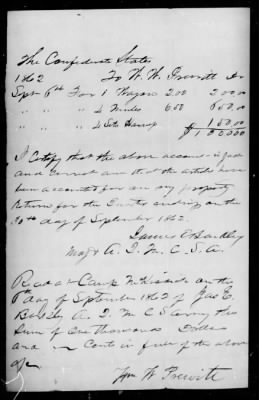 The Confederate States
1862 To W. W. Prewitt Dr
Sept 6th For 1 Wagon 200 200 00
" " " 4 Mules 650 650.00
" " " 4 Sets Harness 150.00
$ 1000 00
I certify that the above account is just
and correct and that the articles have
been accounted for on my property
return for the Quarter ending on the
30th day of September 1862.
Major A. Q. M. C. S. A.
Recd at Camp on the
day of September 1862 of Jas C.
A. Q. M. C S Army the
Sum of one thousand Dolls
and Cents in full of the above
Wm W Prewitt